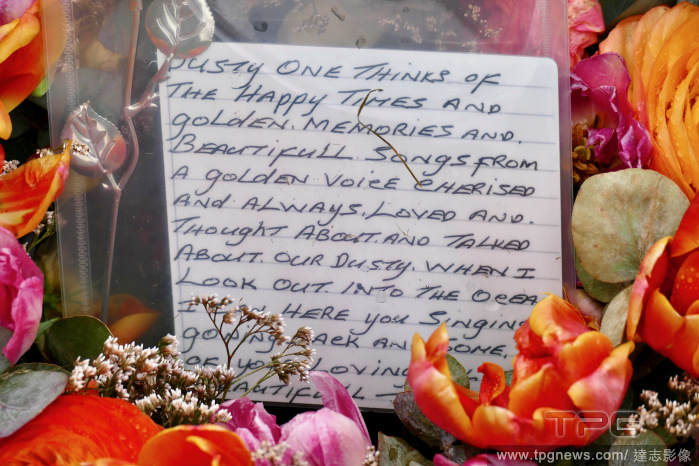 DUSTY ONE THINKS OF
THE HAPPY TIMES AND
GOLDEN. MEMORIES AND.
BEAUTIFULL. SONGS FROM
A GOLDEN VOICE CHERISED
AND ALWAYS. LOVED AND.
THOUGHT ABOUT. AND TALKED
ABOUT. OUR DUSTY. WHEN I
LOOK OUT. INTO THE OCEA
I HERE YOU SINGIN
GOING BACK AN
OF YOU
TPG
www.tpgnews.com / 達志影像